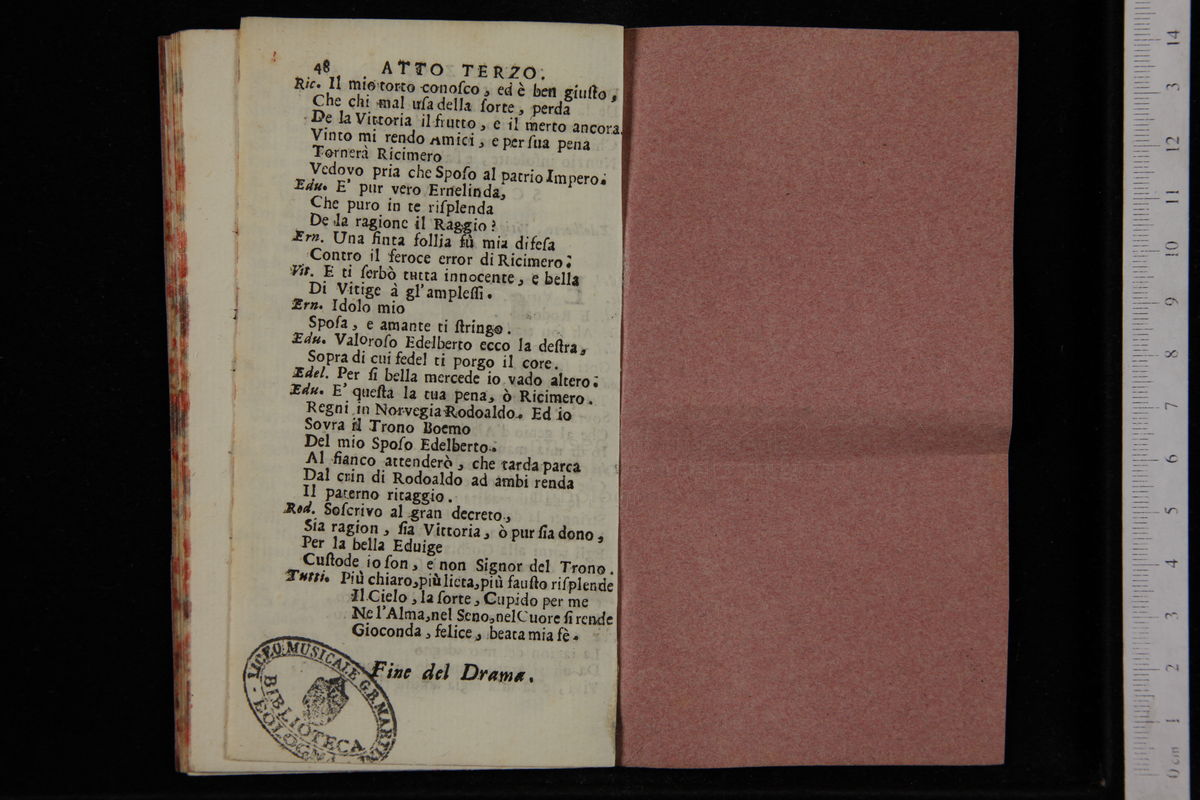 48 ATTO TERZO.
Ric. Il mio torto conoſco, ed è ben giuſto,
Che chi mal uſa della ſorte, perda
De la Vittoria il frutto, e il merto ancora.
Vinto mi rendo Amici, e per ſua pena
Tornerà Ricimero
Vedovo pria che Spoſo al patrio Impero.
Edu. E' pur vero Ernelinda,
Che puro in te riſplenda
De la ragione il Raggio?
Ern. Una finta follia fù mia difeſa
Contro il feroce error di Ricimero.
Vit. E ti ſerbò tutta innocente, e bella
Di Vitige à gl'ampleſſi.
Ern. Idolo mio
Spoſa, e amante ti ſtringo.
Edu. Valoroſo Edelberto ecco la deſtra,
Sopra di cui fedel ti porgo il core.
Edel. Per ſi bella mercede io vado altero.
Edu. E' queſta la tua pena, ò Ricimero.
Regni in Norvegia Rodoaldo. Ed io
Sovra il Trono Boemo
Del mio Spoſo Edelberto.
Al fianco attenderò, che tarda parca
Dal crin di Rodoaldo ad ambi renda
Il paterno ritaggio.
Rod. Soſcrivo al gran decreto,
Sia ragion, ſia Vittoria, ò pur ſia dono,
Per la bella Eduige
Cuſtode io ſon, e non Signor del Trono.
Tutti. Più chiaro, più lieta, più fauſto riſplende
Il Cielo, la ſorte, Cupido per me
Ne l'Alma, nel Seno, nel Cuore ſi rende
Gioconda, felice, beata mia fè.
Fine del Drama.
LICEO MUSICALE G.B. MARTI
BIBLIOTECA
BOLOGNA
14
3
12
11
10
9
8
7
6
5
4
3
2
1
0 cm